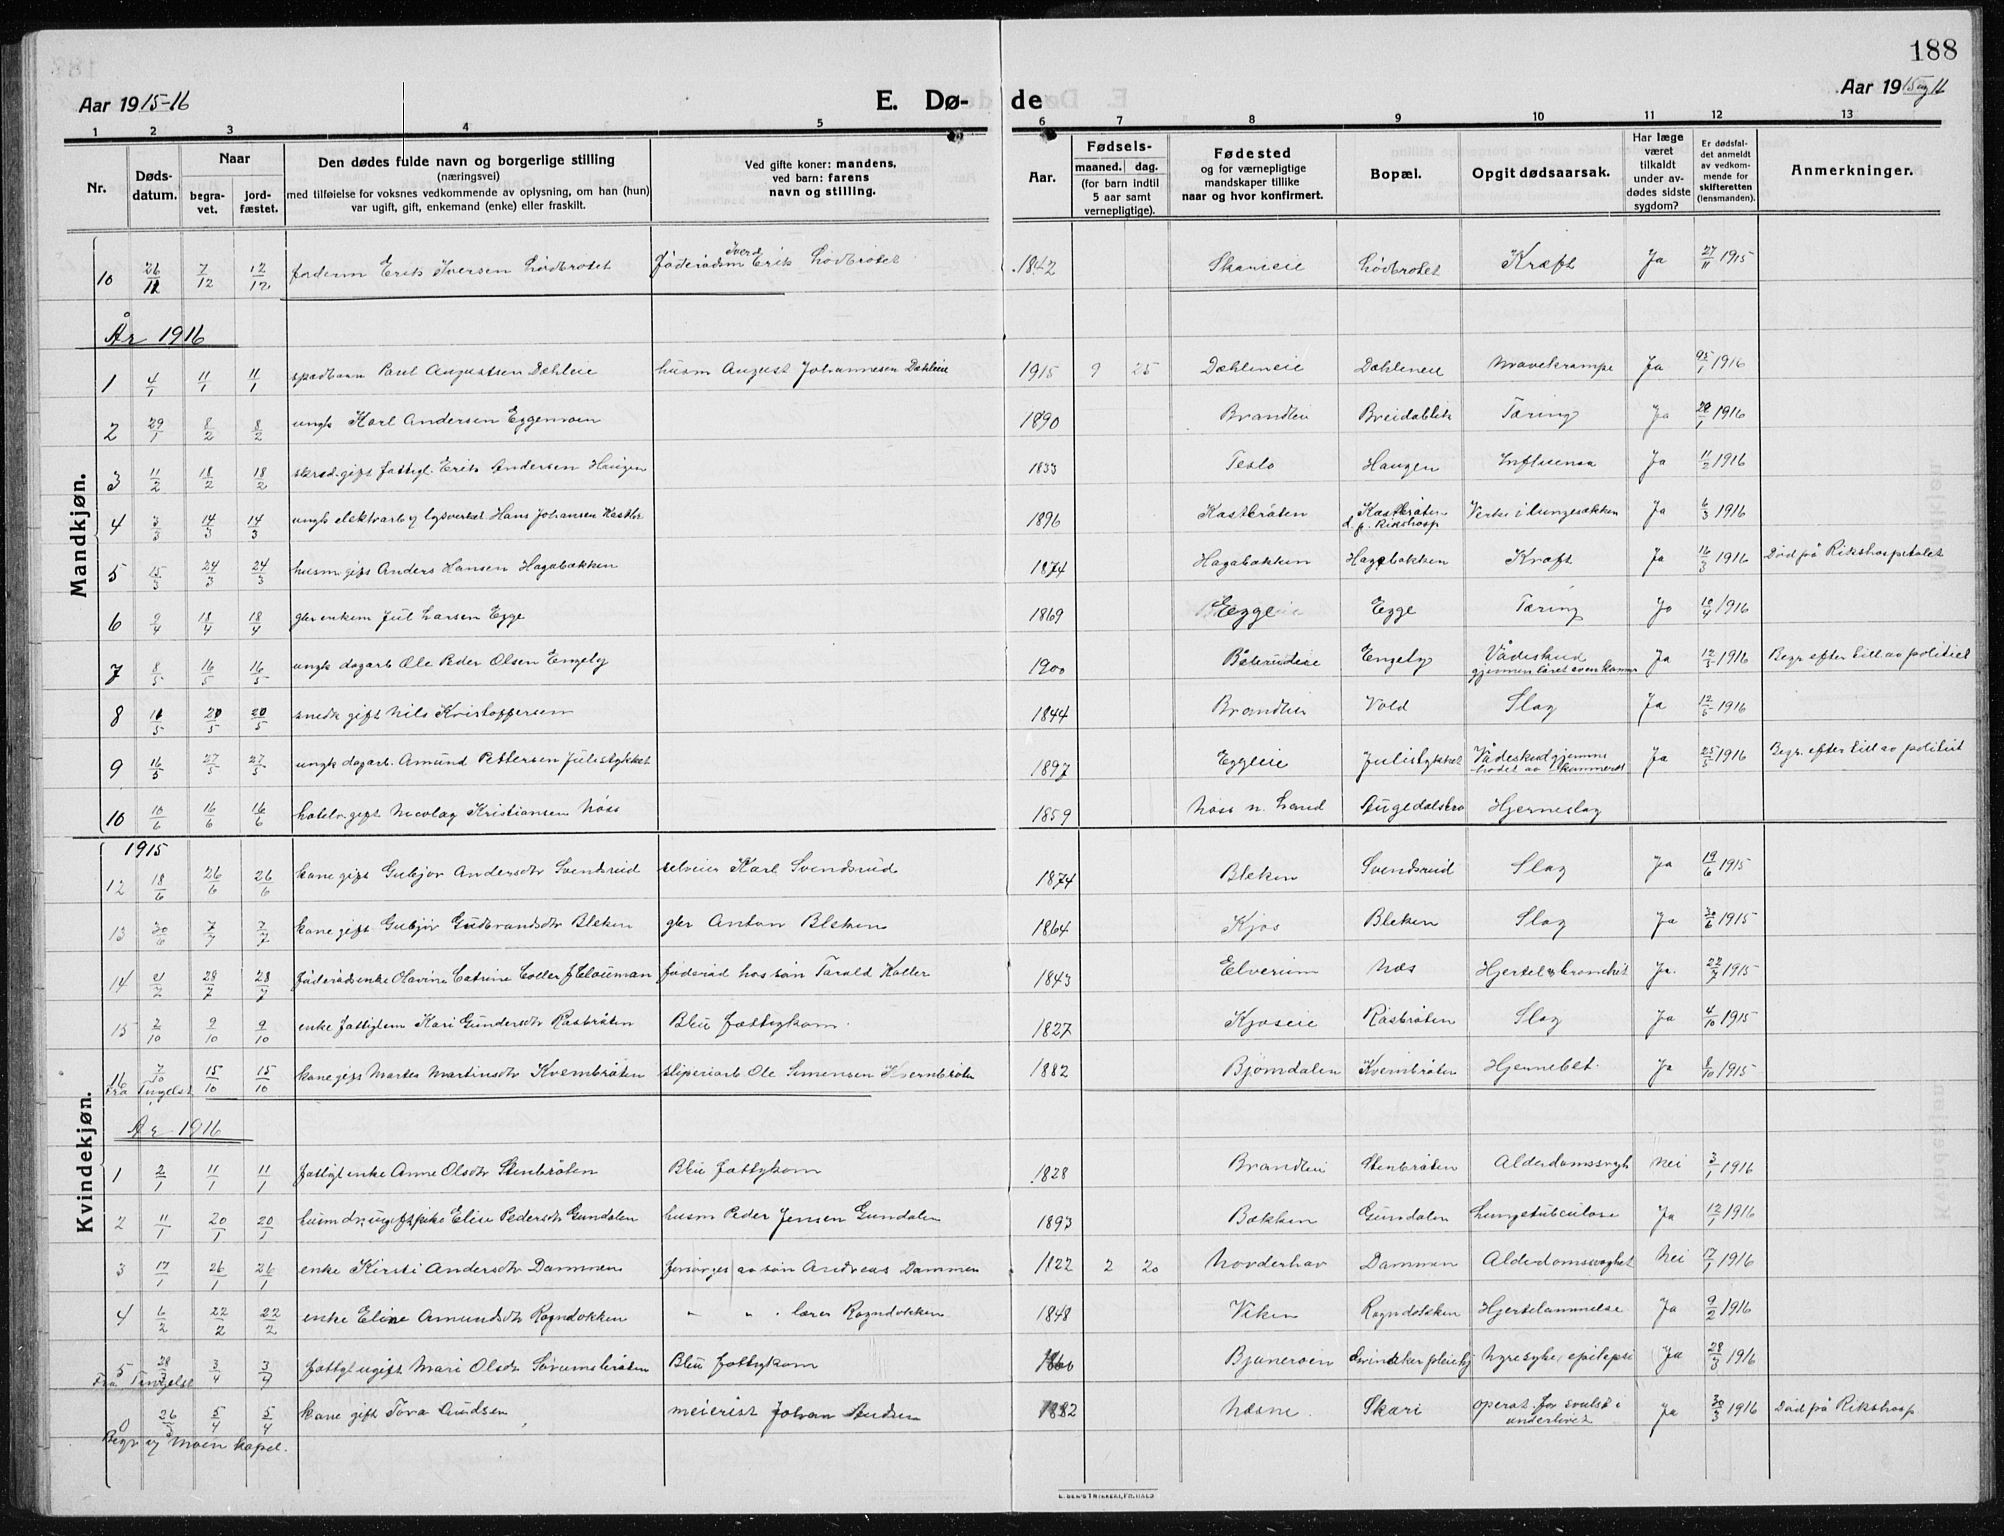 188
Aar 1915-16
E. Dø- de
Aar 1915 og 16
1 2 3 4 5 6 7 8 9 10 11 12 13
Nr.
Døds-datum.
Naar
begra-vet.
jord-fæstet.
Den dødes fulde navn og borgerlige stilling
(næringsvei)
med tilføielse for voksnes vedkommende av oplysning, om han (hun)
var ugift, gift, enkemand (enke) eller fraskilt.
Ved gifte koner: mandens,
ved barn: farens
navn og stilling.
Aar.
Fødsels-
maaned. dag.
(for barn indtil
5 aar samt
vernepligtige).
Fødested
og for værnepligtige
mandskaper tillike
naar og hvor konfirmert.
Bopæl.
Opgit dødsaarsak.
Har læge
været
tilkaldt
under av-
dødes sidste
sygdom?
Er dødsfal-
det anmeldt
av vedkom-
mende for
skifteretten
(lensmanden).
Anmerkninger.
Mandkjøn.
10 26/11 7/12 12/12 føderm Erik Iversen Lødbrotet Føderådsm Iver Erik Lødbrotet 1842 Lødbrotet Kræft Ja 27/11 1915
År 1916
1 4/1 11/1 11/1 spædbarn Paul Augustsen Dæhleie husm August Johannesen Dæhleie 1915 9 25 Dæhleneie Dæhleneie Mavekrampe Ja 1916
2 29/1 8/2 8/2 ungk Karl Andersen Eggemoen 1890 Brandleie Breidablik Tæring Ja 1916
3 11/2 18/2 18/2 skræd. gift fattigl. Erik Andersen Haugen 1833 Teslo Haugen Influensa Ja 11/2 1916
4 3/3 14/3 14/3 ungk elektrarb og lysverket Hans Johansen Kastbr 1896 Kastbråten Kastbråten d. p. Rikshosp Verke i lungesækken Ja 6/3 1916
5 15/3 24/3 24/3 husm. gift Anders Hansen Hagabakken 1874 Hagabakken Hagabakken Kræft Ja 16/3 1916 Død på Rikshospitalet
6 9/4 18/4 18/4 gbr enkem Jul Larsen Egge 1869 Eggeie Egge Tæring Ja 10/4 1916
7 8/5 16/5 16/5 ungk dagarb Ole Peder Olsen Engeby 1900 Engeby Vådeskud gjennem låret av en kamer Ja 12/5 1916 Begr efter till av politiet
8 11/5 20/5 20/5 snedk gift Nils Kristoffersen 1844 Brandleie Vold Slag Ja 12/5 1916
9 16/5 27/5 27/5 ungk dagarb. Amund Pettersen Julistykket 1897 Eggeie Julistykket Vådeskud gjennem hodet av kammerat Ja 25/5 1916 Begr. efter till av politiet
10 10/6 16/6 16/6 hotelv. gift Nicolay Kristiansen Nøss 1859 Nøss n. Land Augedalsbro Hjerneslag
Kvindekjøn.
1915
12 18/6 26/6 26/6 kone gift Gubjør Andersdtr Svendsrud selveier Karl Svendsrud 1874 Bleken Svendsrud Slag Ja 19/6 1915
13 30/6 7/7 7/7 kone gift Gubjør Gudbrandsdtr Bleken gbr Anton Bleken 1864 Kjos Bleken Slag Ja 30/6 1915
14 21/7 28/7 28/7 føderådsenke Olavine Catrine Koller f Clouman føderåd hos søn Tarald Koller 1843 Elverum Næs Hjertel & bronchit Ja. 22/7 1915
15 2/10 9/10 9/10 enke fattiglem Kari Gundersdtr Råsbråten Blev fattigkom. 1827 Kjoseie Råsbråten Slag Ja 4/10 1915
16 7/10 15/10 15/10 kone gift Marte Martinsdtr Kvernbråten sliperiarb Ole Simensen Kvernbråten 1882 Bjørndalen Kvernbråten Hjernebet. Ja 8/10 1915
Fra Tingelst
År 1916
1 2/1 11/1 11/1 fattigl enke Anne Olsdtr Stenbråten Blev fattigkom 1828 Brandleie Stenbråten Alderdomssvagh Nei 3/1 1916
2 11/1 20/1 20/1 husmdr. ugift pike Elise Pedersdtr Gundalen husm Peder Jensen Gundalen 1893 Bækken Gundalen Lungetubculose Ja 12/1 1916
3 17/1 26/1 26/1 enke Kirsti Andersdtr Dammen forsørges av søn Andreas Dammen 1822 2 20 Norderhov Dammen Alderdomssvaghet Nei 17/1 1916
4 6/2 22/2 22/2 enke Eline Amundsdtr Rogndokken " " . lærer Rogndokken 1848 Viken Rogndokken Hjertelammelse Ja 9/2 1916
5 28/3 3/4 3/4 fattigl ugift Mari Olsdtr Sørumsbråten Blev fattigkom 1860 Bjoneroen Nyresyke, epilepsi Ja 28/3 1916
Fra Tingelst
6 26/3 5/4 5/4 kone gift Tora Audsen meierist Johan Audsen 1882 Næsne. Skari operat. for svulst i underlivet Ja 30/3 1916 Død på Rikshosp
Begr og Moen kapel.